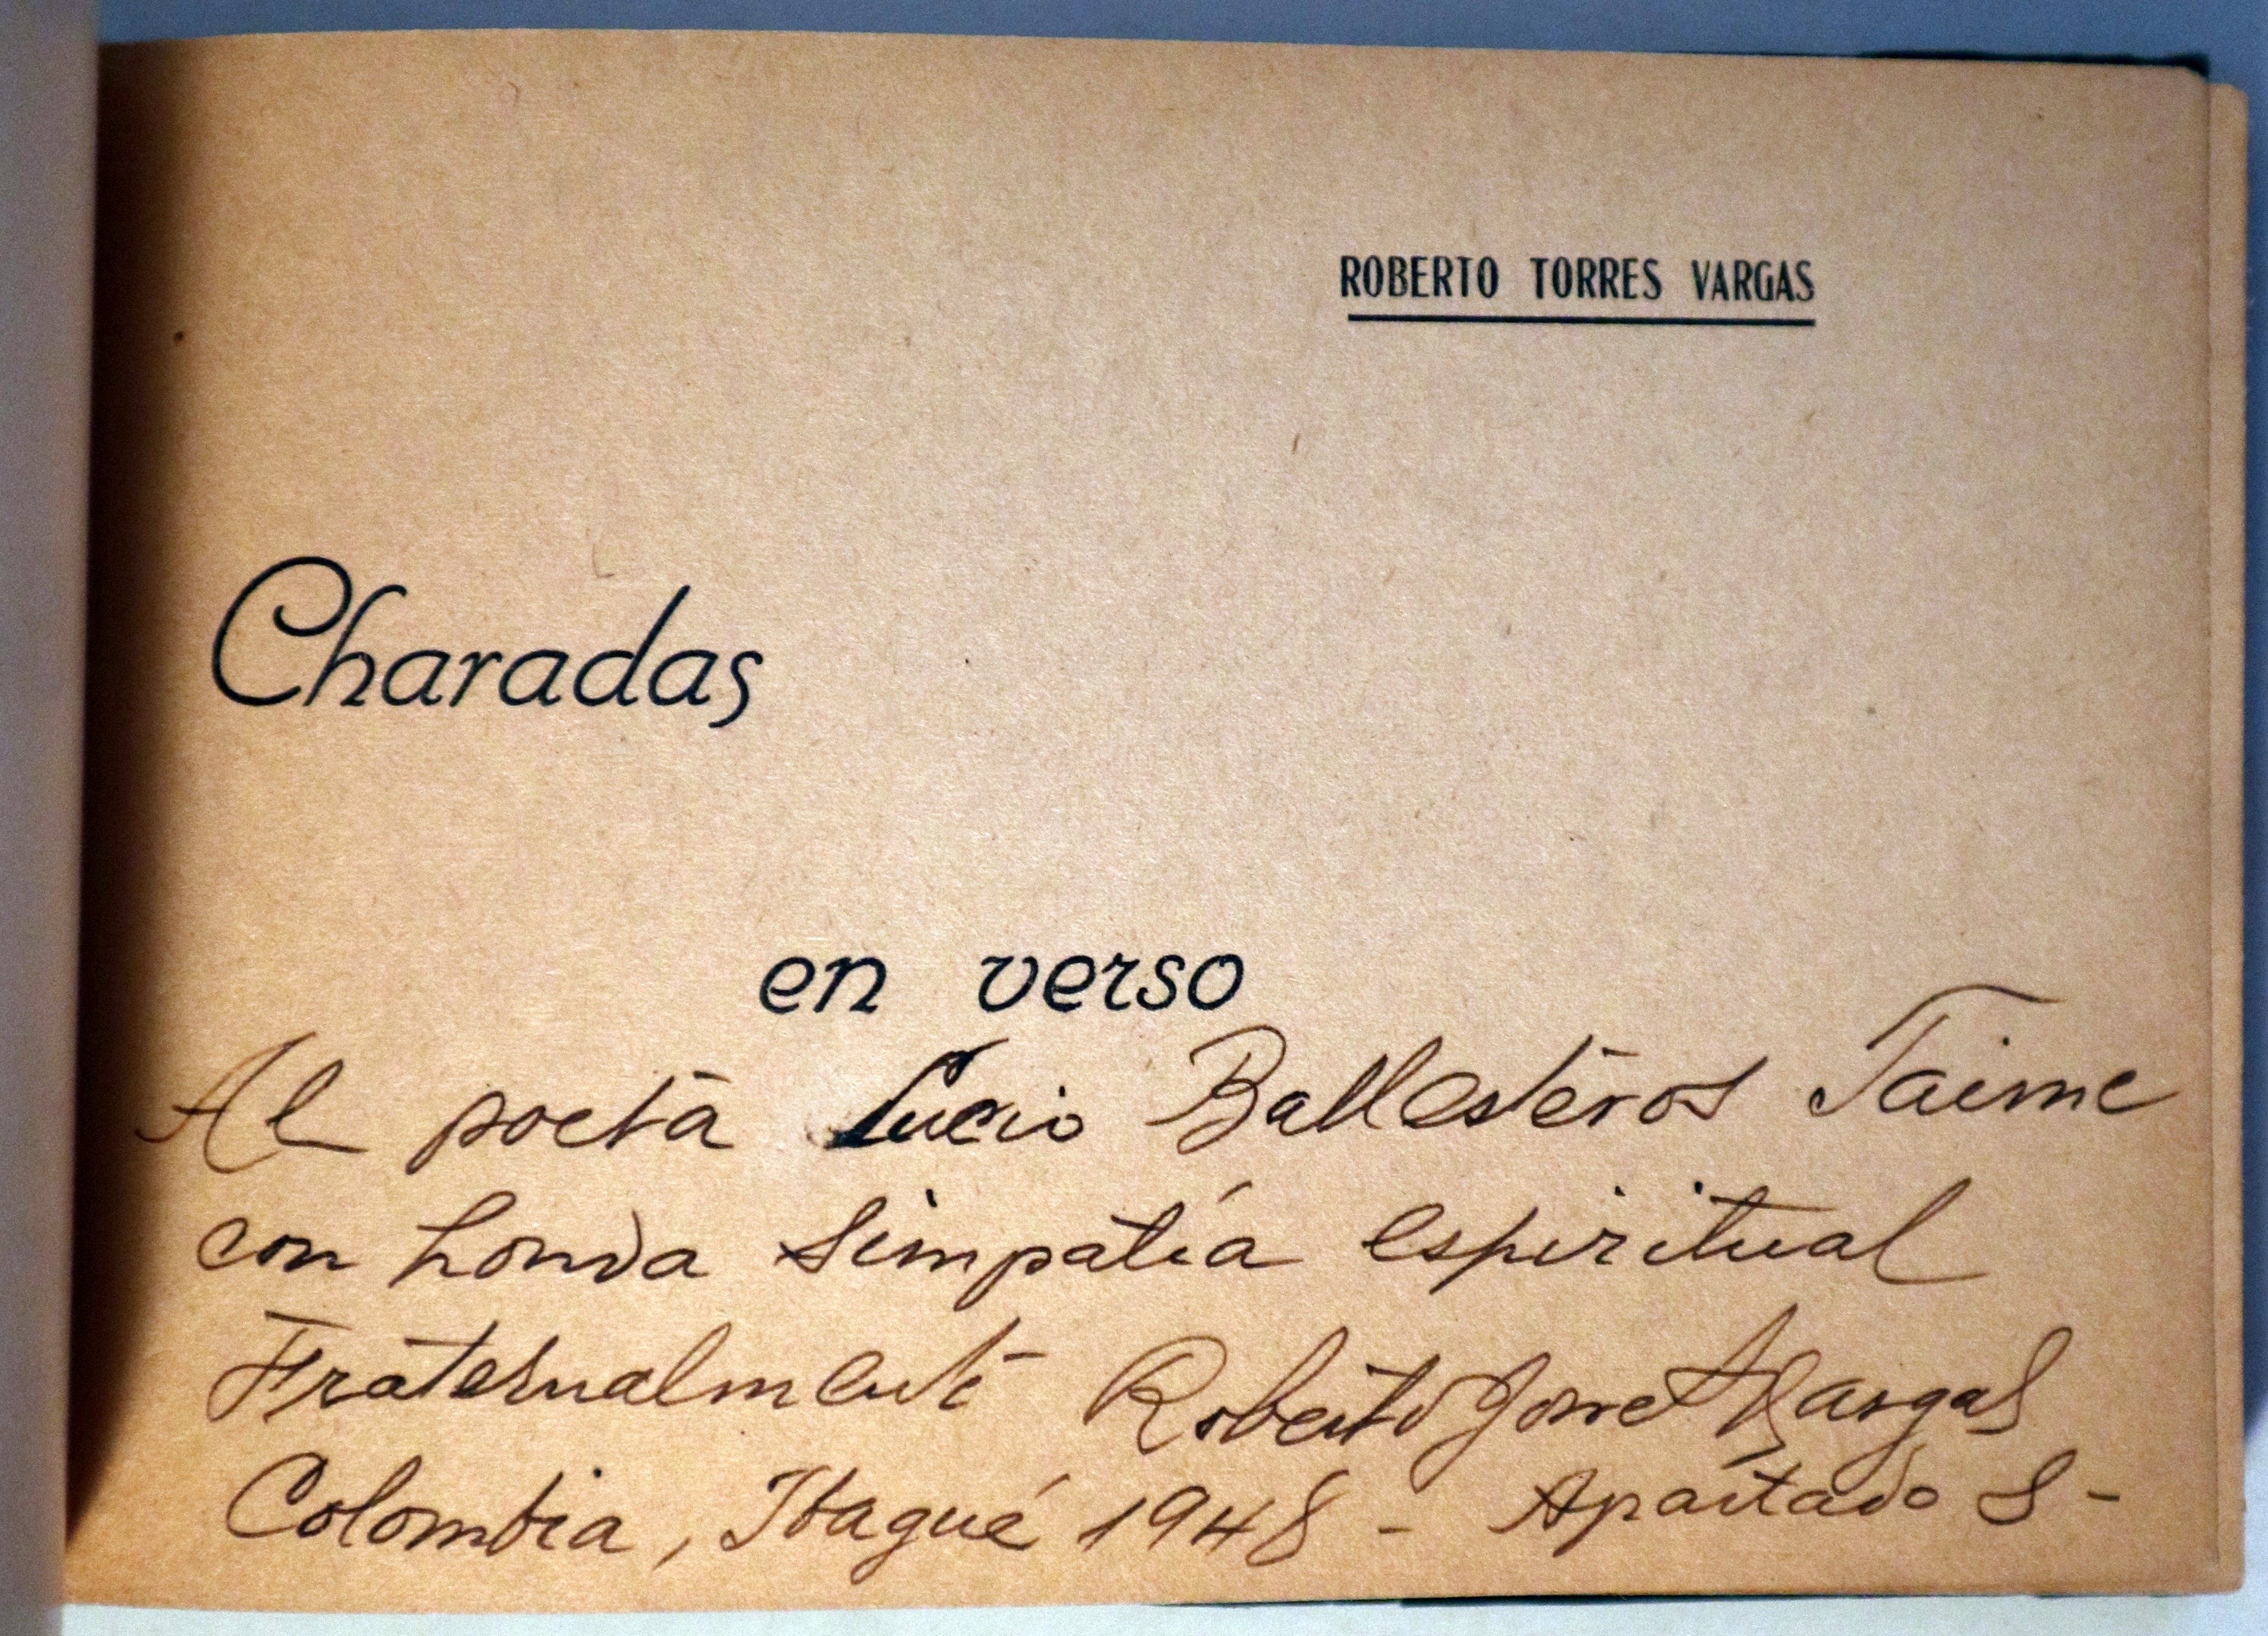 ROBERTO TORRES VARGAS
Charadas
en verso
Al poeta Lucio Ballesteros Jaime
con honda simpatía espiritual
Fraternalmente Roberto Torres Vargas
Colombia, Ibagué 1948 - Apartado 8-